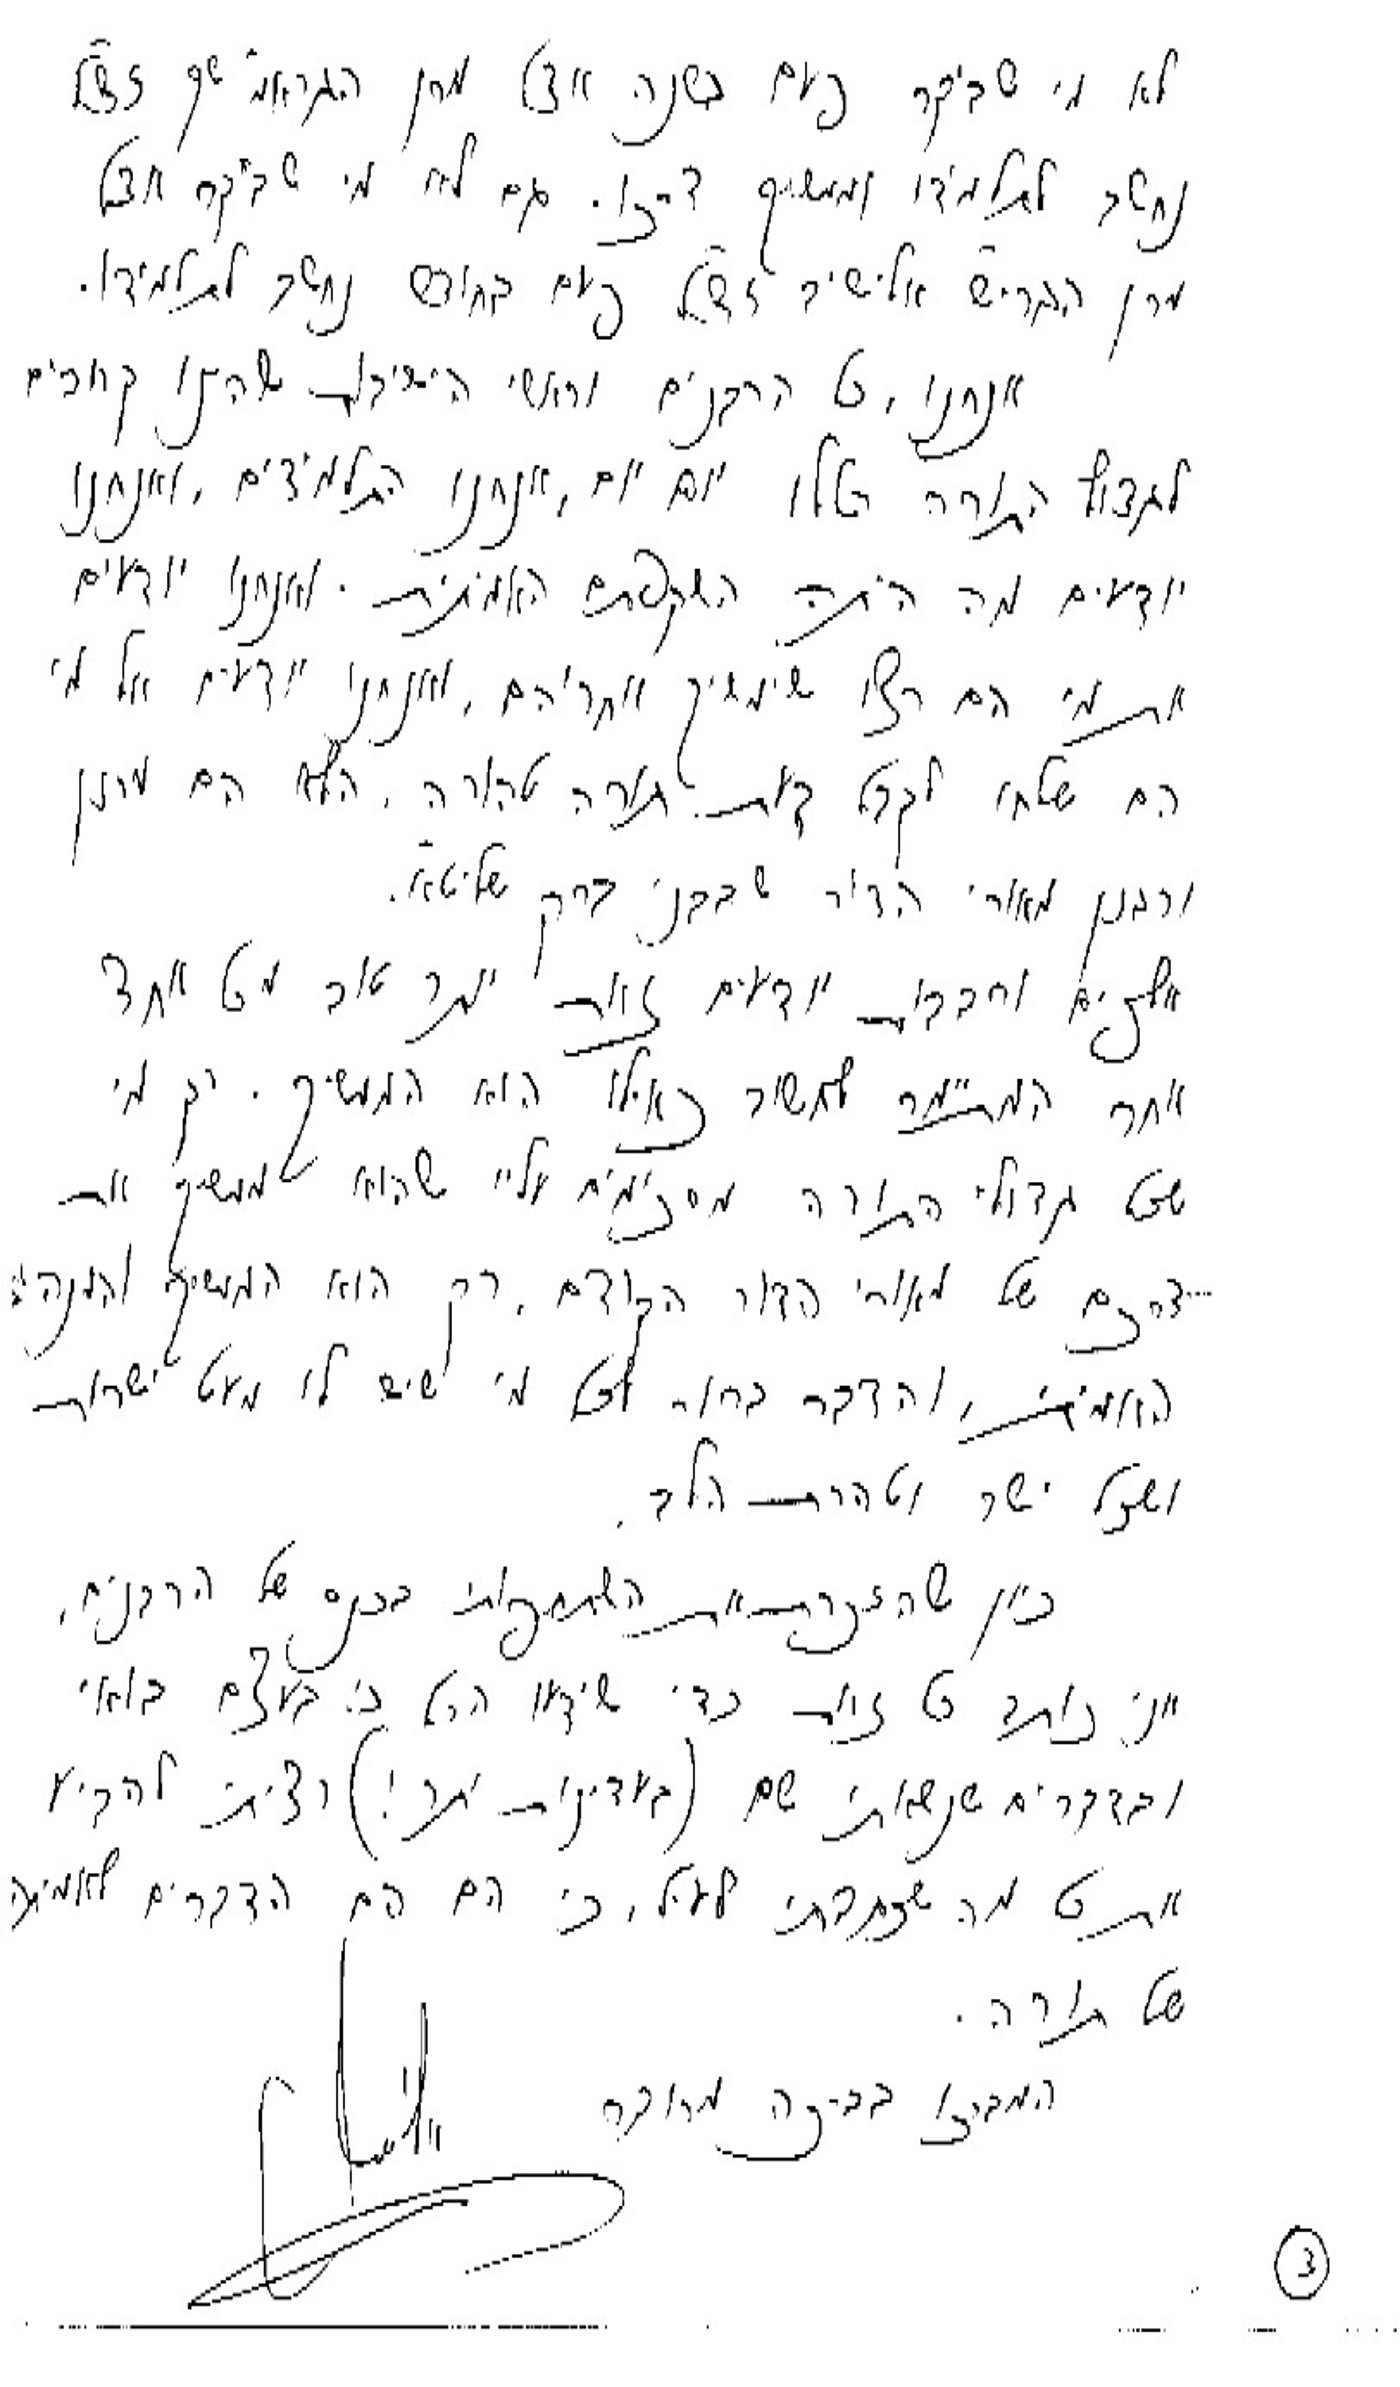 לא מי שביקר פעם בשנה אצל מרן הגראמ״ש זצ״ל
נחשב לתלמידו וממשיך דרכו. גם לא מי שביקר אצל
מרן הגרי״ש אלישיב זצ״ל פעם בחודש נחשב לתלמידו.
אנחנו, כל הרבנים וראשי הישיבות שהיינו קרובים
לגדולי התורה הללו יום יום, אנחנו התלמידים, ואנחנו
יודעים מה היתה השקפתם האמיתית. ואנחנו יודעים
את מי הם רצו שימשיך אחריהם, ואנחנו יודעים אל מי
הם שלחו לקבל דעת תורה טהורה. הלא הם מרנן
ורבנן מאורי הדור שבבני ברק שליט״א.
אלפים ורבבות יודעים זאת יותר טוב מכל אחד
אחר המתיימר לחשוב כאילו הוא הממשיך. רק מי
שכל גדולי התורה מסכימים עליו שהוא ממשיך את
דרכם של מאורי הדור הקודם, רק הוא הממשיך והמנהיג
האמיתי, והדבר ברור לכל מי שיש לו מעט ישרות
ושכל ישר וטהרת הלב.
כיון שהזכרת את השתתפותי בכנס של הרבנים,
אני כותב כל זאת כדי שידעו הכל כי בעצם בואי
ובדברים שנשאתי שם (בעדינות יתר!) רציתי להביע
את כל מה שכתבתי לעיל, כי הם הם הדברים לאמיתה
של תורה.
המברכו בברכה מרובה
3